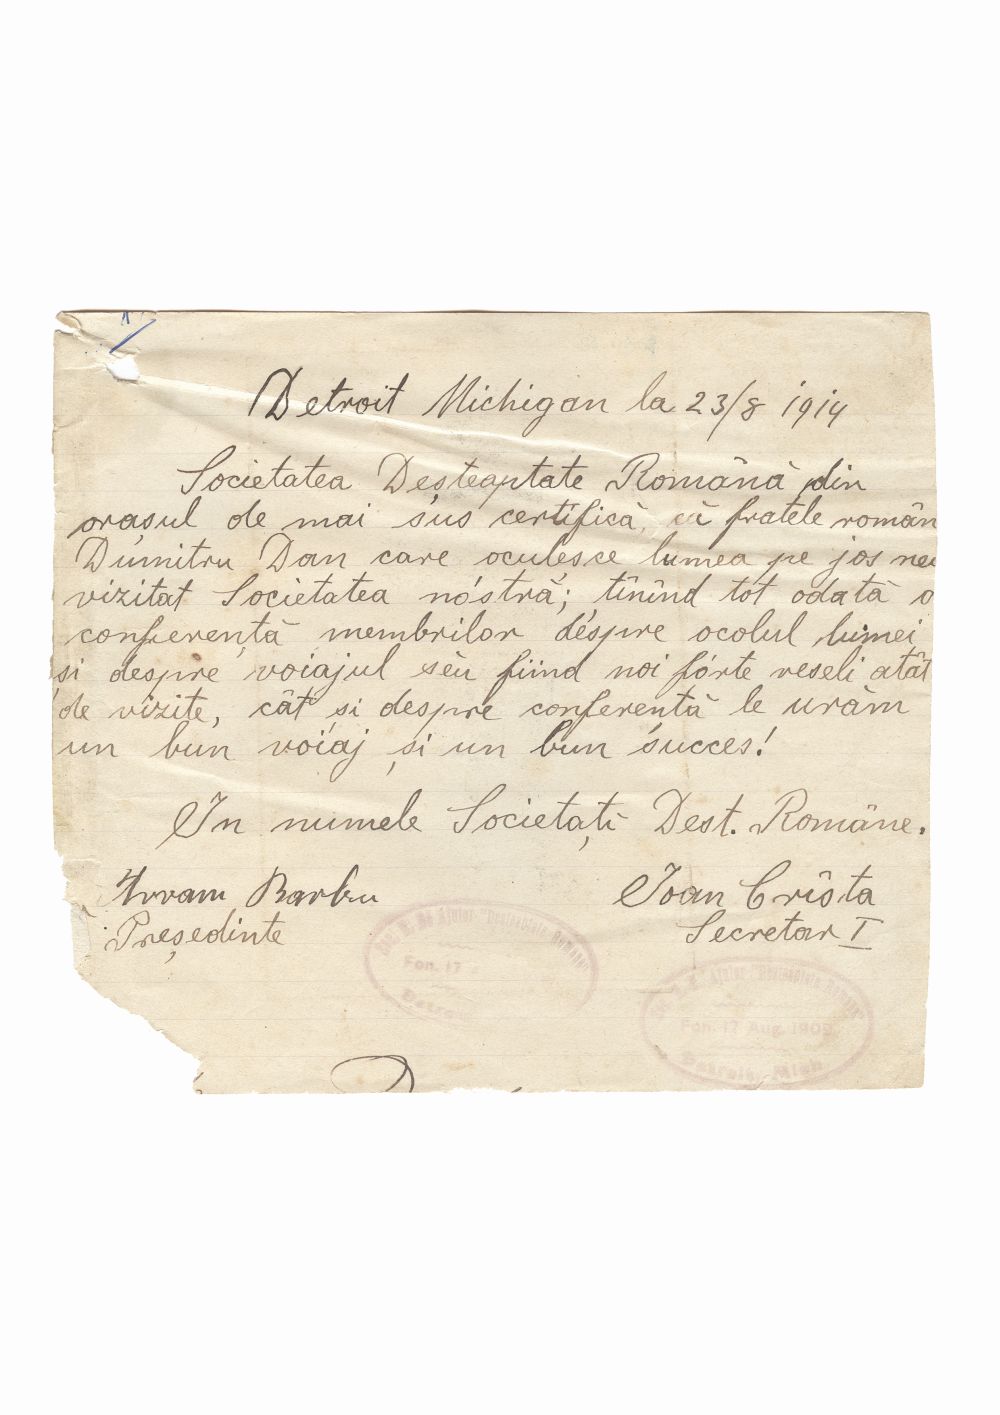 Detroit Michigan la 23/8 1914
Societatea Deșteaptate Română din
orașul de mai sus certifică, că fratele român
Dumitru Dan care oculesce lumea pe jos ne
vizitat Societatea nóstră; tînînd tot odată o
conferență membrilor despre ocolul lumei
si despre voiajul sèu fiind noi fórte veseli atât
de vizite, cât si despre conferentă le urăm
un bun voiaj și un bun succes!
In numele Societați Dest. Române.
Avram Barbu
Președinte
Ioan Crista
Secretar I
Ajutor
Fon. 17
Detro
Ajutor
Fon. 17 Aug. 1909
Detroit, Mich